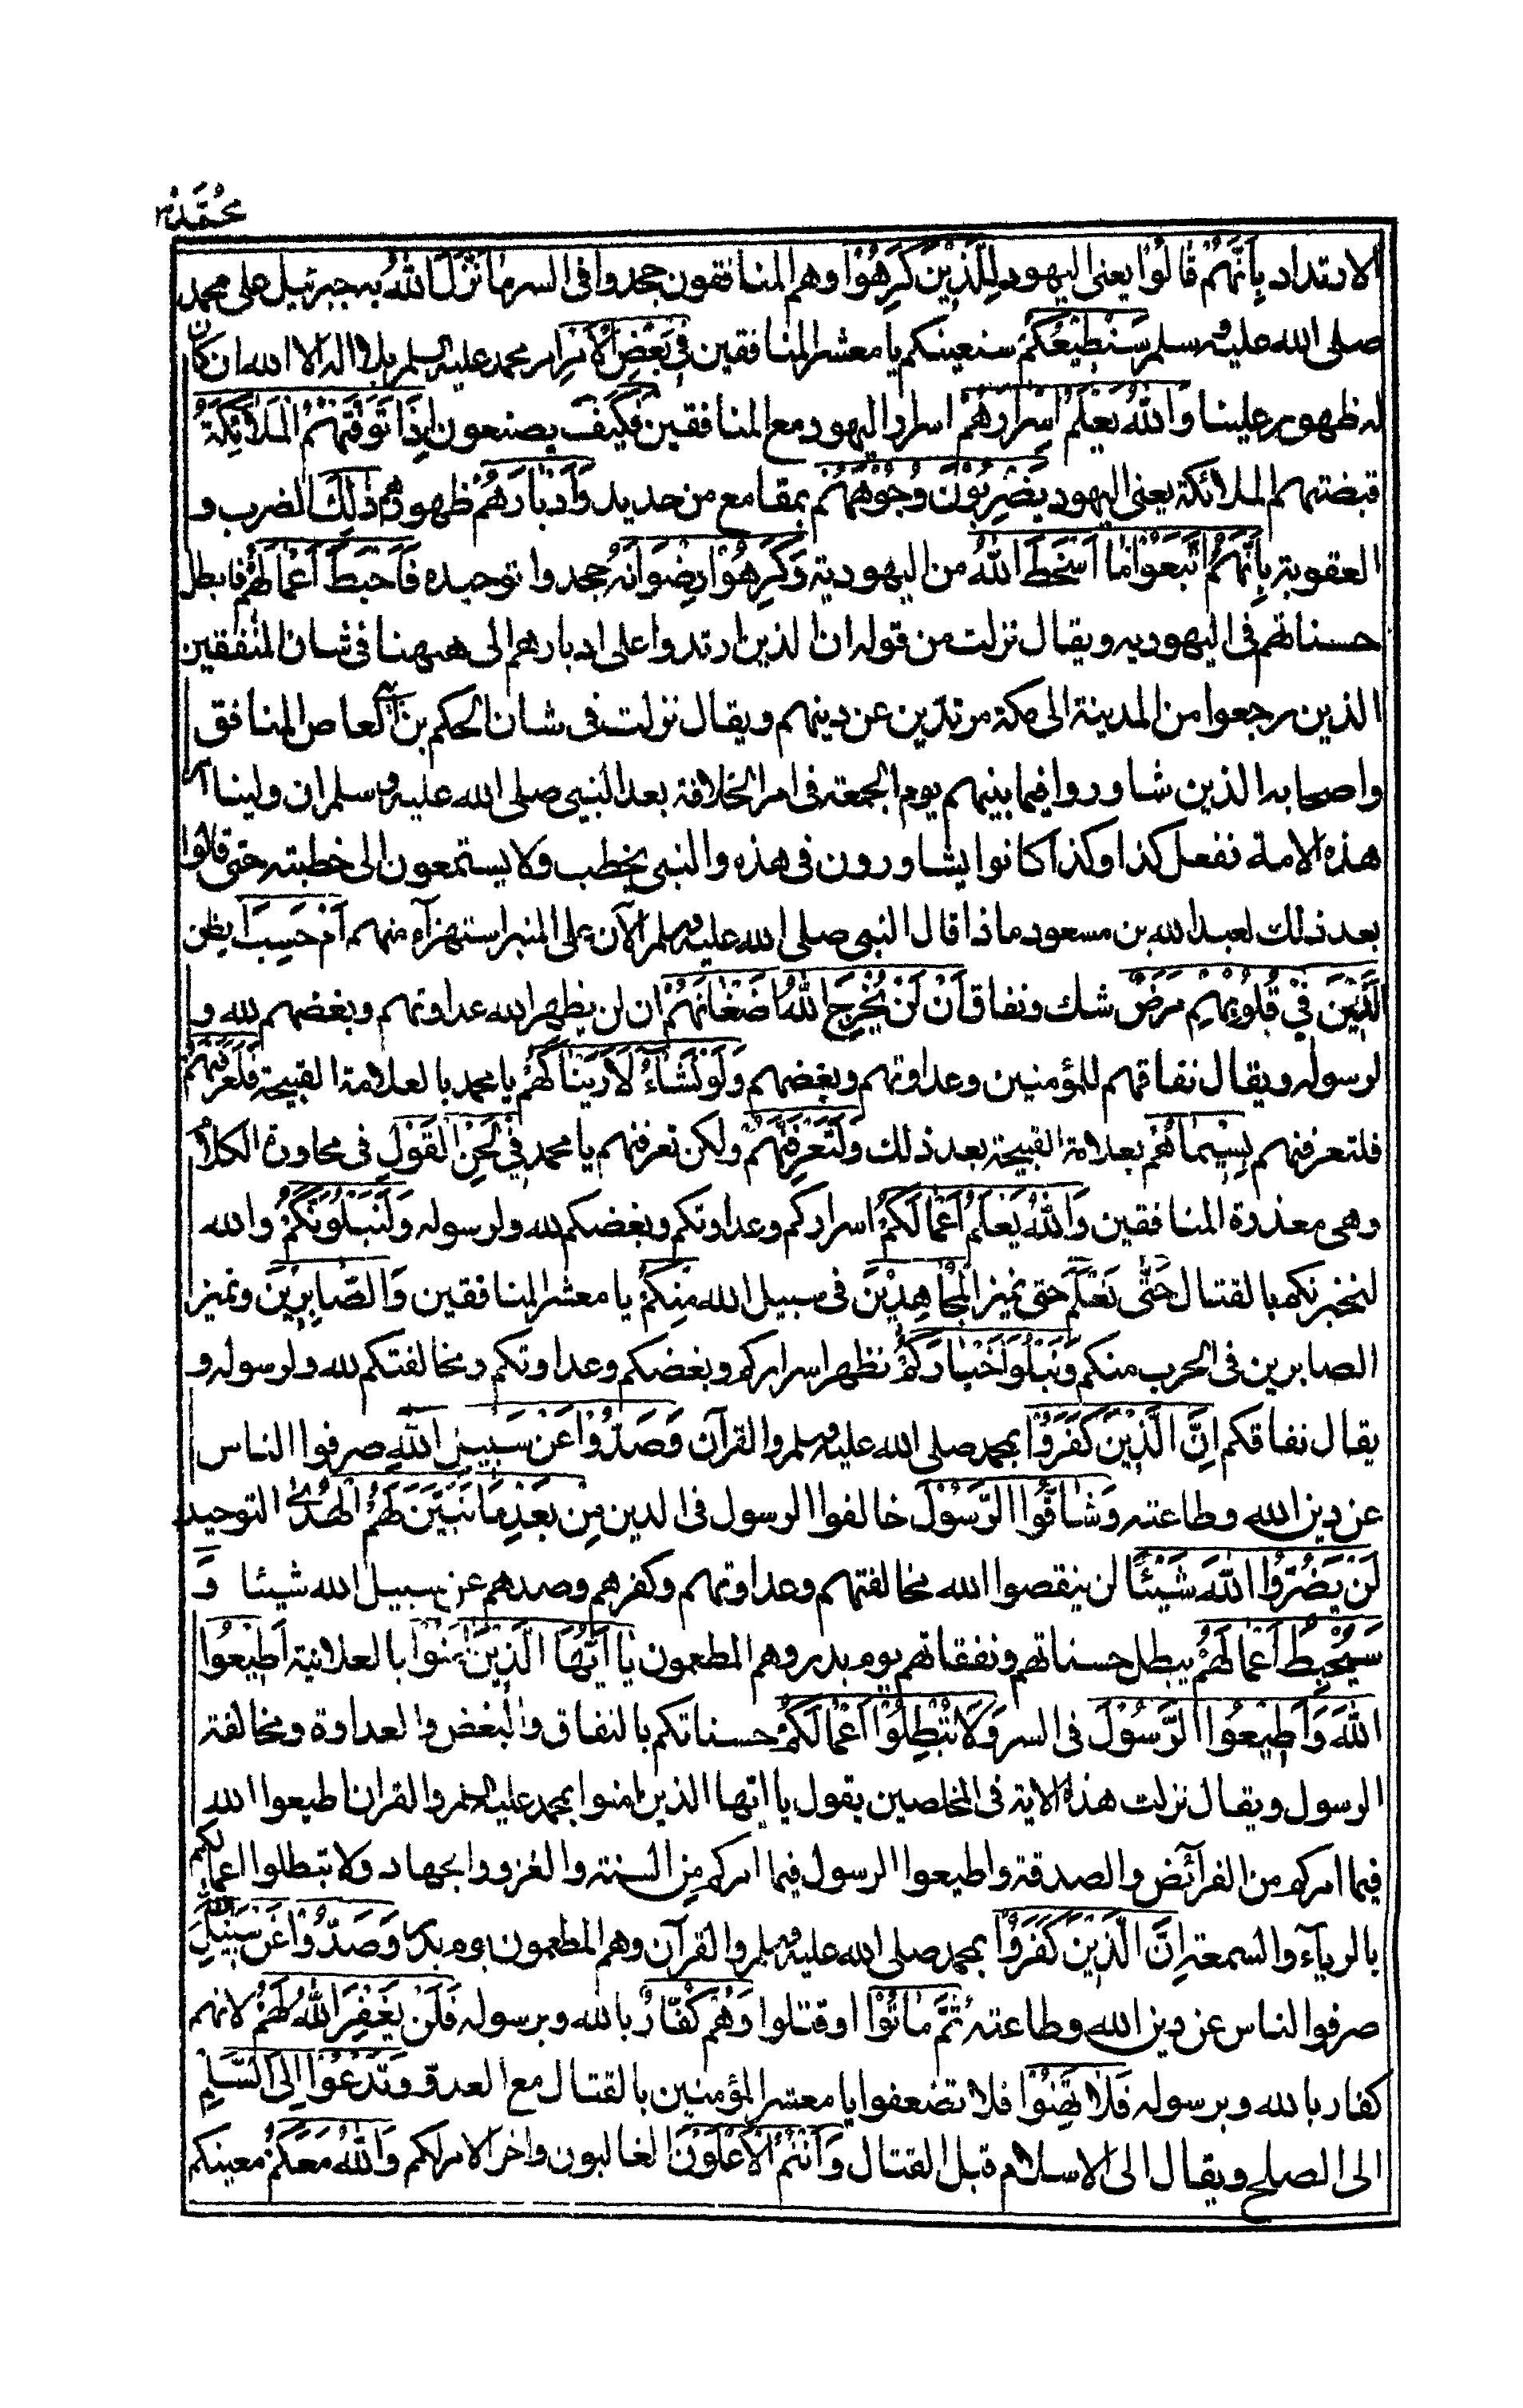 محمد
الارتداد بِأَنَّهُمْ قَالُوا يعنى اليهود لِلَّذِينَ كَرِهُوا وهم المنافقون جحدوا فى السر مَا نَزَّلَ اللَّهُ به جبرئيل على محمد
صلى الله عليه وسلم سَنُطِيعُكُمْ سنعينكم يا معشر المنافقين فِي بَعْضِ الْأَمْرِ امر محمد عليه السلم بلا اله الا الله ان كان
له ظهور علينا وَاللَّهُ يَعْلَمُ إِسْرَارَهُمْ اسرار اليهود مع المنافقين فَكَيْفَ يصنعون إِذَا تَوَفَّتْهُمُ الْمَلَائِكَةُ
قبضتهم الملائكة يعنى اليهود يَضْرِبُونَ وُجُوهَهُمْ بمقامع من حديد وَأَدْبَارَهُمْ ظهورهم ذَلِكَ الضرب و
العقوبة بِأَنَّهُمُ اتَّبَعُوا مَا أَسْخَطَ اللَّهَ من اليهودية وَكَرِهُوا رِضْوَانَهُ جحدوا توحيده فَأَحْبَطَ أَعْمَالَهُمْ فابطل
حسناتهم فى اليهودية ويقال نزلت من قوله ان الذين ارتدوا على ادبارهم الى ههنا فى شان المنفقين
الذين رجعوا من المدينة الى مكة مرتدّين عن دينهم ويقال نزلت فى شان الحكم بن ابى العاص المنافق
واصحابه الذين شاوروا فيما بينهم يوم الجمعة فى امر الخلافة بعد النبى صلى الله عليه وسلم ان ولينا امر
هذه الامة نفعل كذا وكذا كانوا يشاورون فى هذه والنبى يخطب ولا يستمعون الى خطبته حتى قالوا
بعد ذلك لعبد الله بن مسعود ماذا قال النبى صلى الله عليه وسلم الآن على المنبر استهزآء منهم أَمْ حَسِبَ ايظن
الَّذِينَ فِي قُلُوبِهِمْ مَرَضٌ شك ونفاق أَنْ لَنْ يُخْرِجَ اللَّهُ أَضْغَانَهُمْ ان لن يظهر الله عداوتهم وبغضهم لله و
لرسوله ويقال نفاقهم للمؤمنين وعداوتهم وبغضهم وَلَوْ نَشَاءُ لَأَرَيْنَاكَهُمْ يا محمد بالعلامة القبيحة فَلَعَرَفْتَهُمْ
فلتعرفنهم بِسِيمَاهُمْ بعلامة القبيحة بعد ذلك وَلَتَعْرِفَنَّهُمْ ولكن تعرفنهم يا محمد فِي لَحْنِ الْقَوْلِ فى محاورة الكلام
وهى معذرة المنافقين وَاللَّهُ يَعْلَمُ أَعْمَالَكُمْ اسراركم وعداوتكم وبغضكم لله ولرسوله وَلَنَبْلُوَنَّكُمْ والله
لنختبرنكم بالقتال حَتَّى نَعْلَمَ حتى نميز الْمُجَاهِدِينَ فى سبيل الله مِنْكُمْ يا معشر المنافقين وَالصَّابِرِينَ ونميز
الصابرين فى الحرب منكم وَنَبْلُوَ أَخْبَارَكُمْ نظهر اسراركم وبغضكم وعداوتكم ومخالفتكم لله ولرسوله و
يقال نفاقكم إِنَّ الَّذِينَ كَفَرُوا بمحمد صلى الله عليه وسلم والقرآن وَصَدُّوا عَنْ سَبِيلِ اللَّهِ صرفوا الناس
عن دين الله وطاعته وَشَاقُّوا الرَّسُولَ خالفوا الرسول فى الدين مِنْ بَعْدِ مَا تَبَيَّنَ لَهُمُ الْهُدَى التوحيد
لَنْ يَضُرُّوا اللَّهَ شَيْئًا لن ينقصوا الله مخالفتهم وعداوتهم وكفرهم وصدهم عن سبيل الله شيئا وَ
سَيُحْبِطُ أَعْمَالَهُمْ يبطل حسناتهم ونفقاتهم يوم بدر وهم المطعمون يَا أَيُّهَا الَّذِينَ آمَنُوا بالعلانية أَطِيعُوا
اللَّهَ وَأَطِيعُوا الرَّسُولَ فى السر وَلَا تُبْطِلُوا أَعْمَالَكُمْ حسناتكم بالنفاق والبغض والعداوة ومخالفة
الرسول ويقال نزلت هذه الاية فى المخلصين يقول يا ايّها الذين امنوا بمحمد عليه السلم والقران اطيعوا الله
فيما امركم من الفرآئض والصدقة واطيعوا الرسول فيما امركم من السنة والغزو والجهاد ولا تبطلوا اعمالكم
بالريآء والسمعة إِنَّ الَّذِينَ كَفَرُوا بمحمد صلى الله عليه وسلم والقرآن وهم المطعمون يوم بدر وَصَدُّوا عَنْ سَبِيلِ اللَّهِ
صرفوا الناس عن دين الله وطاعته ثُمَّ مَاتُوا او قتلوا وَهُمْ كُفَّارٌ بالله وبرسوله فَلَنْ يَغْفِرَ اللَّهُ لَهُمْ لانهم
كفار بالله وبرسوله فَلَا تَهِنُوا فلا تضعفوا يا معشر المؤمنين بالقتال مع العدوّ وَتَدْعُوا إِلَى السَّلْمِ
الى الصلح ويقال الى الاسلام قبل القتال وَأَنْتُمُ الْأَعْلَوْنَ الغالبون واخر الامر لكم وَاللَّهُ مَعَكُمْ معينكم